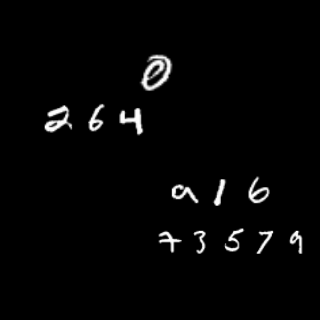 0
2 6 4
9 1 6
7 3 5 7 9